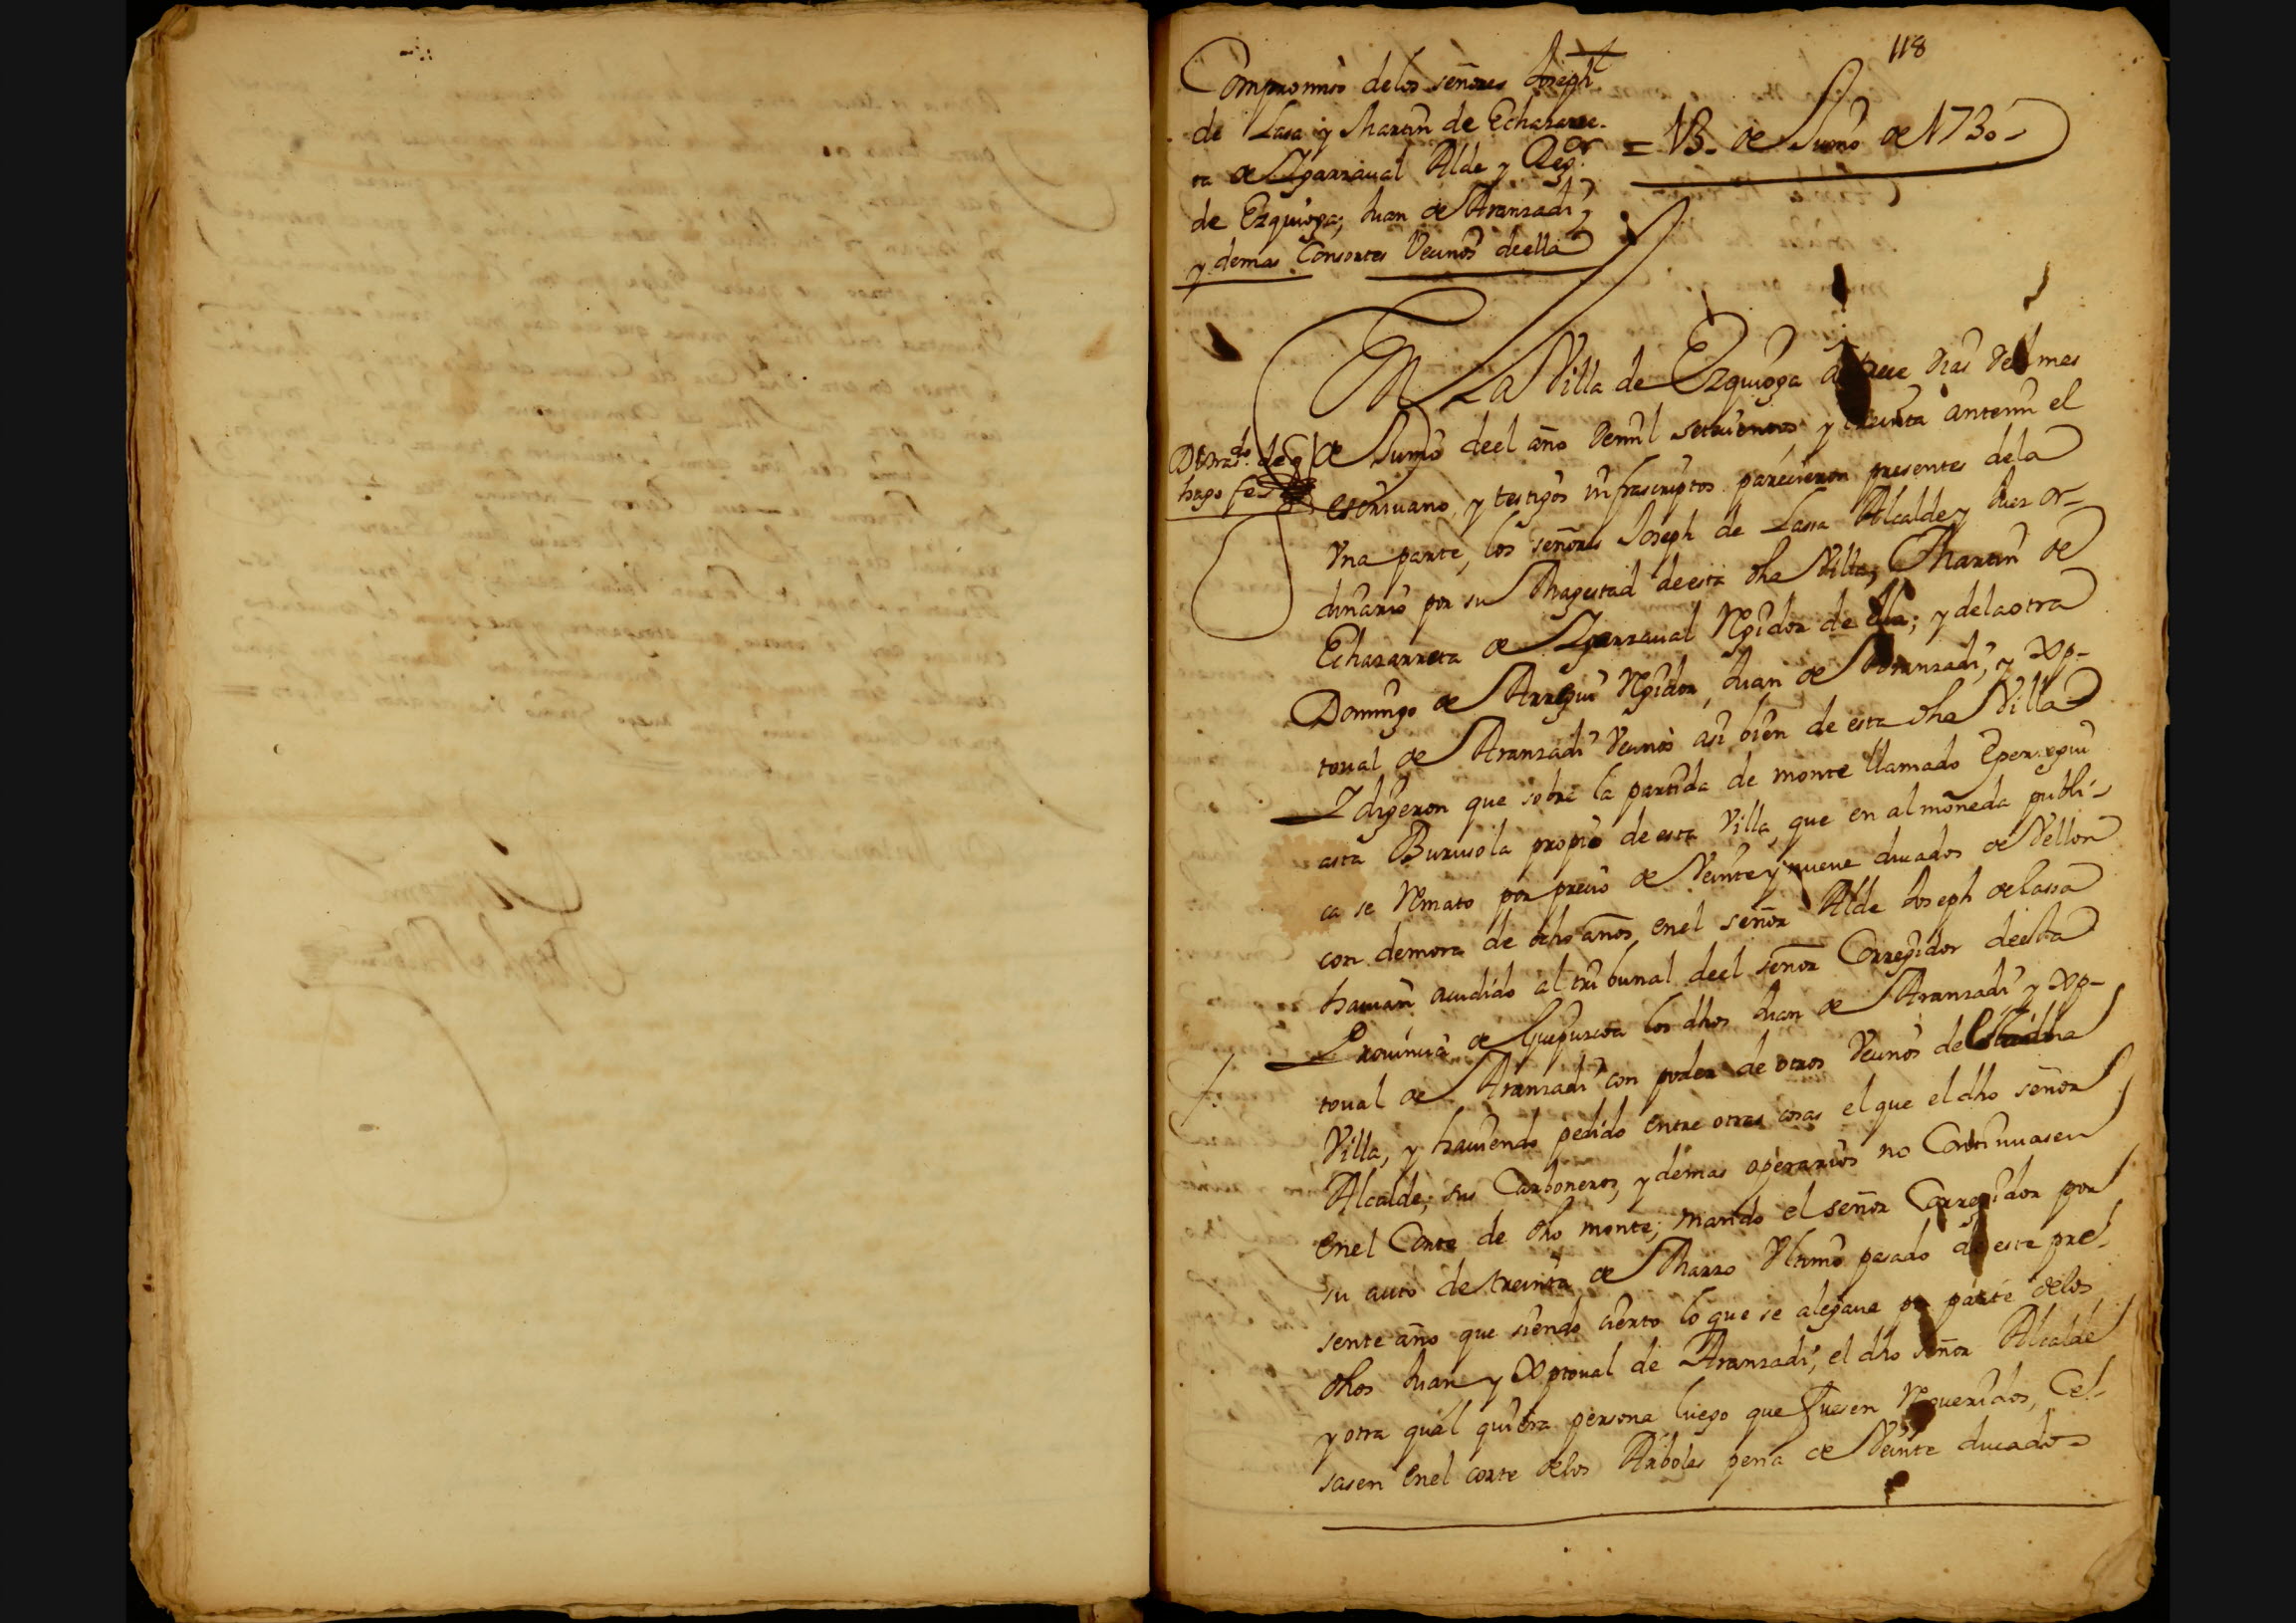 118
Compromiso delos señores Joseph
de Lasa y Martin de Echazarre-
ta de Yparraval Alde y Regor
de Ezquioga; Juan de Aranzadi, y
y demas Consortes Vecinos de ella
= 13. de Junio de 1730 -
En La Villa de Ezquioga a trece dias del mes
de Junio de el año de mil setecientos y treinta antemi el
Dtrado. de q
hago fe
escrivano, y testigos infrascriptos parecieron presentes dela
Vna parte, los señores Joseph de Lassa Alcalde y Juez or-
dinario por su Magestad de esta dha Villa, Martin de
Echazarreta de Yparraval Rejidor de ella; y dela otra
Domingo de Arregui Rejidor, Juan de Aranzadi, y Xp-
toual de Aranzadi Vecinos asi bien de esta dha Villa
I digeron que sobre la partida de monte llamado
asta Buruisola propio de esta Villa, que en almoneda publi-
ca se Remato por precio de Veinte y nueve ducados de Vellon
con demora de ocho años, enel señor Alde Joseph de Lassa
hauian acudido al tribunal de el señor Corregidor de esta
Prouincia de Guipuzcoa los dhos Juan de Aranzadi y Xp-
toual de Aranzadi con poder de otros Vecinos de esta dha
Villa, y hauiendo pedido entre otras cosas el que el dho señor
Alcalde, sus Carboneros, y demas operarios no Continuasen
enel Corte de dho monte; mando el señor Corregidor por
su auto de treinta de Marzo Vltimo pasado de este pre-
sente año que siendo cierto lo que se alegaua por parte delos
dhos Juan y Xptoual de Aranzadi, el dho señor Alcalde
y otra qual quiera persona luego que fuesen Requeridos, Ces-
sasen enel corte delos Arboles pena de Veinte ducados